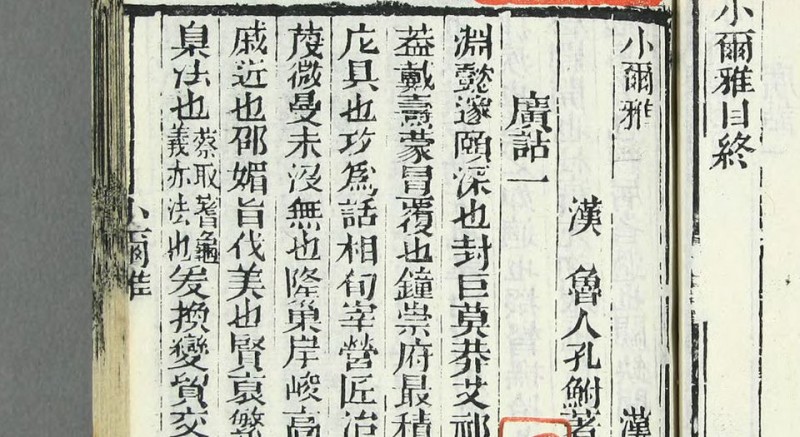 小爾雅目終
小爾雅 漢
漢 魯人孔鮒著
廣詁一
淵懿邃頤深也封巨莫莽艾祁
蓋戴壽蒙冒覆也鐘崇府最積
庀具也攻爲話相旬宰營匠治
蔑微曼末没無也隆巢岸峻高
戚近也邵媚旨伐美也賢裒繁
臬法也蔡取蓍龜義亦法也爰換變貿交
小爾雅